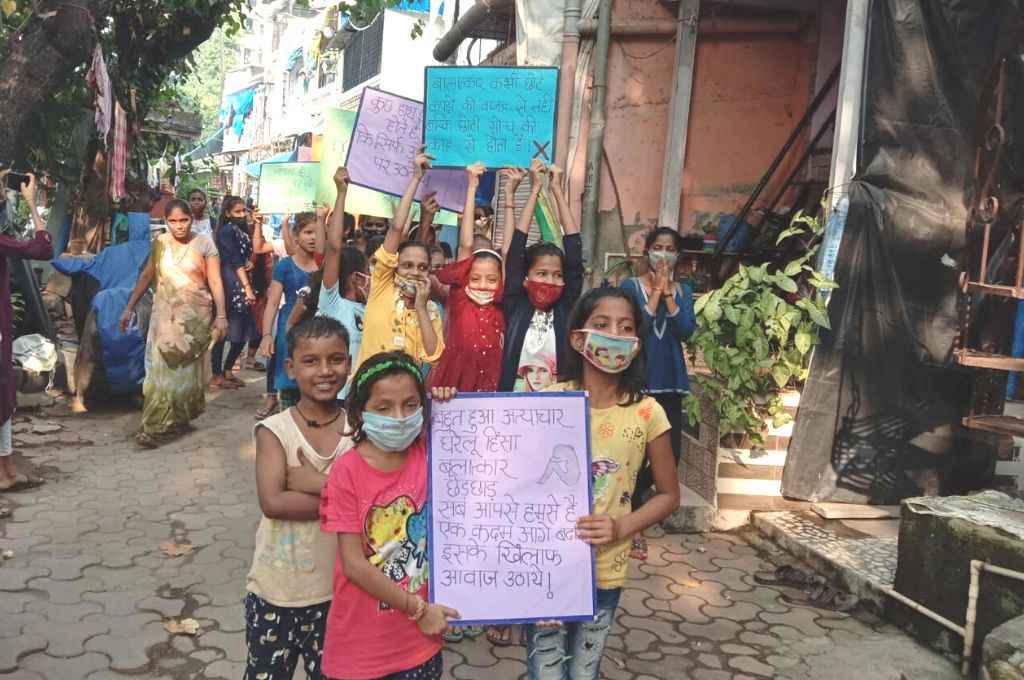 बालात्कार कभी छोटे
कपड़े की वजह से नहीं
बल्की छोटी सोच की
वजह से होता है।
कुछ
होते है
कि सिर्फ
पर उठा
बहुत हुआ अत्याचार
घरेलू हिंसा
बलात्कार
छेड़छाड़
सब आपसे हमसे है
एक कदम आगे
इसके खिलाफ
आवाज उठाये!